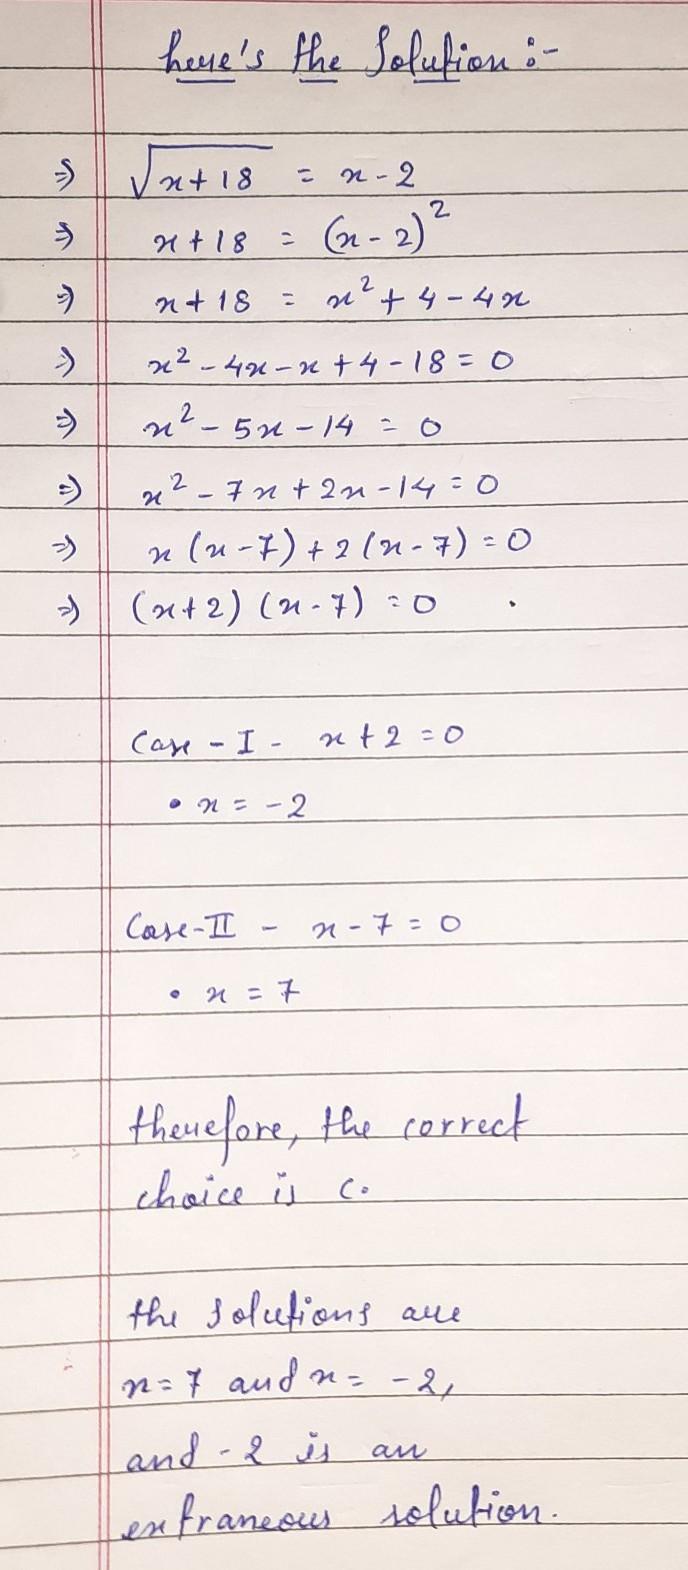 here's the Solution :-
⇒ √x+18 = x-2
⇒ x+18 = (x-2)²
⇒ x+18 = x²+4-4x
⇒ x²-4x-x+4-18=0
⇒ x²-5x-14=0
⇒ x²-7x+2x-14=0
⇒ x(x-7)+2(x-7)=0
⇒ (x+2)(x-7)=0 .
Case-I - x+2=0
• x=-2
Case-II - x-7=0
• x=7
therefore, the correct
choice is C.
the solutions are
x=7 and x=-2,
and -2 is an
extraneous solution.